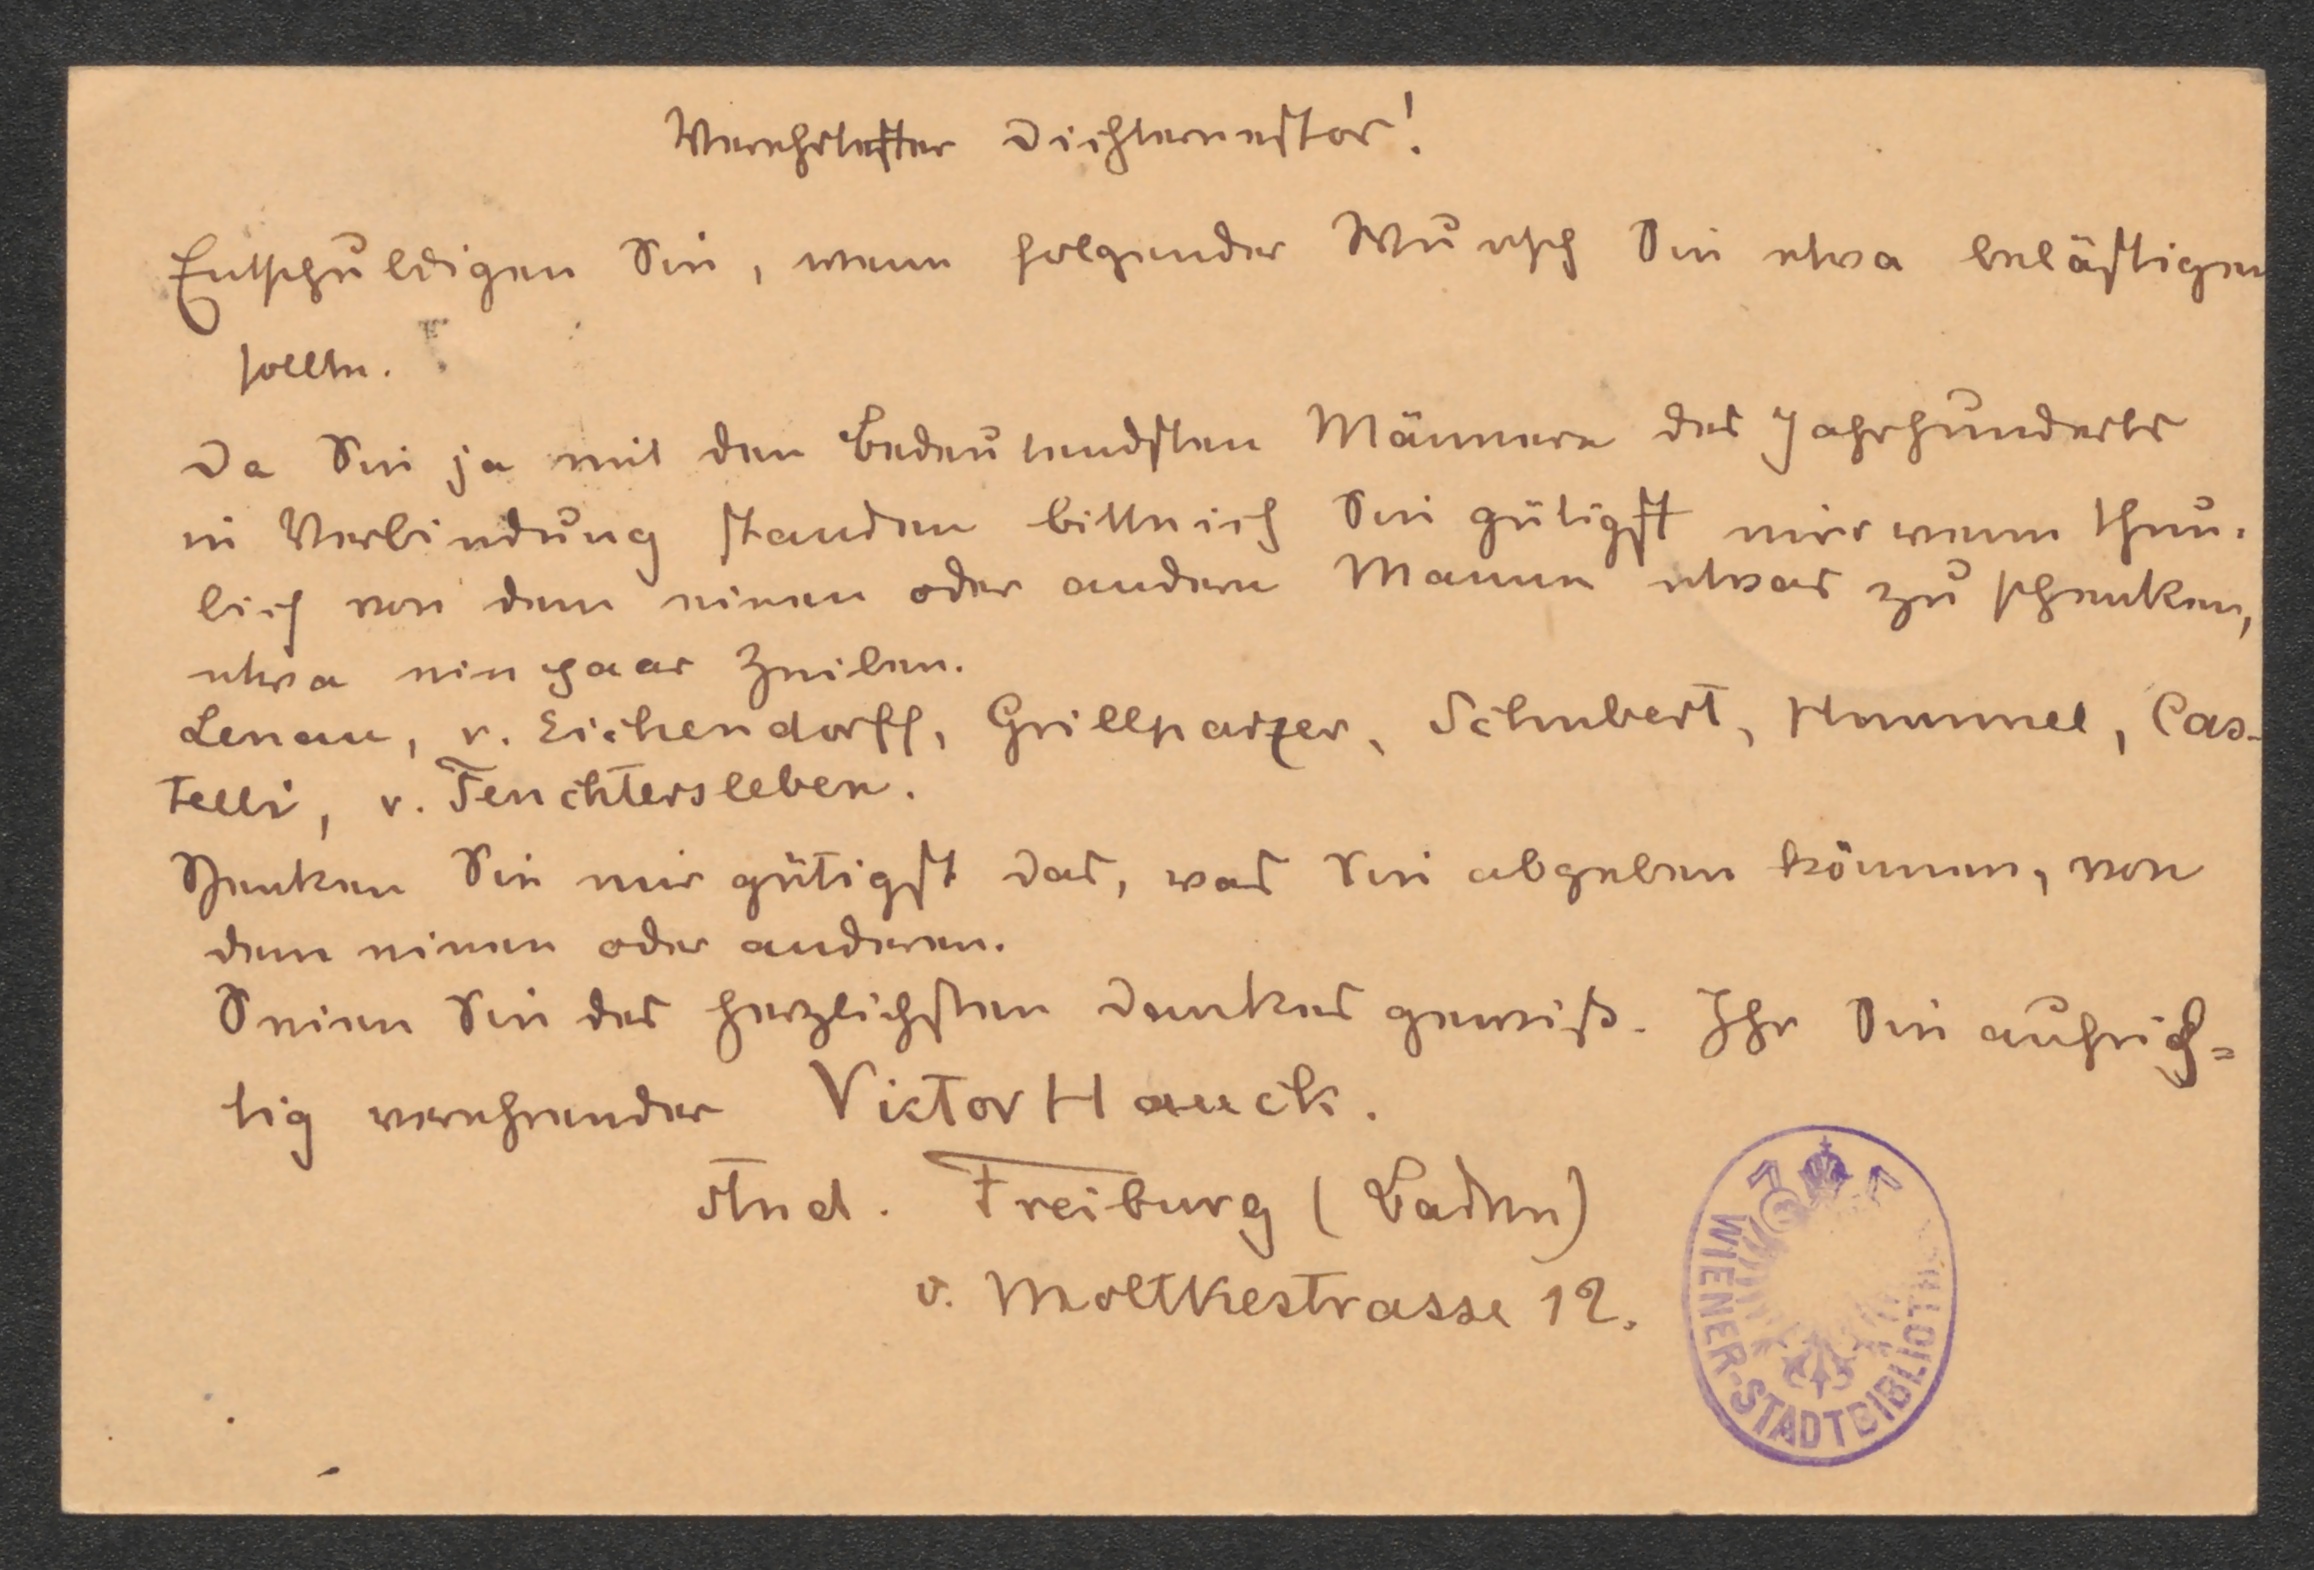 Verehrtester Dichternestor!
Entschuldigen Sie, wenn folgender Wunsch Sie etwa belästigen
sollte.
Da Sie ja mit den bedeutendsten Männern des Jahrhunderts
in Verbindung standen bitte ich Sie gütigst mir wenn thun-
lich von dem einen oder andern Manne etwas zu schenken,
etwa ein paar Zeilen.
Lenau, v. Eichendorff, Grillparzer, Schubert, Hummel, Cas-
telli, v. Feuchtersleben.
Senken Sie mir gütigst das, was Sie abgeben können, von
dem einen oder anderen.
Seien Sie des herzlichsten Dankes gewiß. Ihr Sie aufrich=
tig verehrender Victor Hauck.
stud. Freiburg (Baden)
v. Moltkestrasse 12.
WIENER-STADTBIBLIOTH